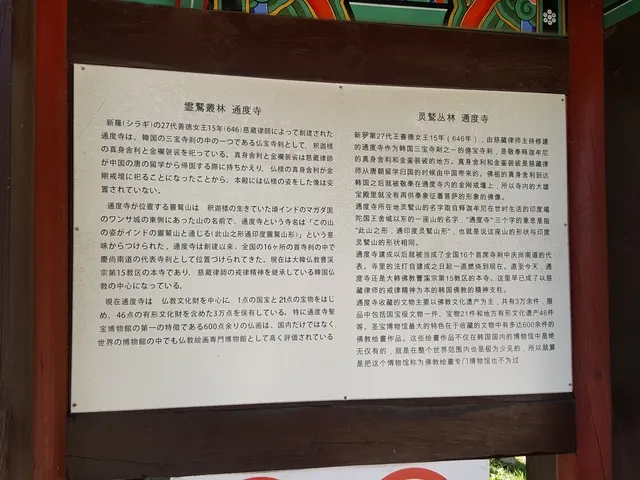 霊鷲叢林 通度寺
新羅(シラギ)の27代善徳女王15年(646)慈蔵律師によって創建された
通度寺は、韓国の三宝寺刹の中の一つである仏宝寺刹として、釈迦様
の真身舎利と金襴袈裟を祀っている。真身舎利と金襴袈裟は慈蔵律師
が中国の唐の留学から帰国する際に持ちかえり、仏様の真身舎利が金
剛戒壇に祀ることになったことから、本殿には仏様の姿をした像は安
置されていない。
通度寺が位置する霊鷲山は 釈迦様の生きていた頃インドのマガダ国
のワンサ城の東側にあった山の名前で、通度寺という寺名は「この山
の姿がインドの霊鷲山と通じる(此山之形通印度靈鷲山形)」という意
味からつけられた。通度寺は創建以来、全国の16ヶ所の首寺刹の中で
慶尚南道の代表寺刹として位置づけられてきた。現在は大韓仏教曹渓
宗第15教区の本寺であり、慈蔵律師の戒律精神を継承している韓国仏
教の中心になっている。
現在通度寺は 仏教文化財を中心に、1点の国宝と21点の宝物をはじ
め、46点の有形文化財を含めた3万点を保有している。特に通度寺聖
宝博物館の第一の特徴である600点余りの仏画は、国内だけではなく、
世界の博物館の中でも仏教絵画専門博物館として高く評価されている
灵鹫丛林 通度寺
新罗第27代王善德女王15年（646年），由慈藏律师主持修建
的通度寺作为韩国三宝寺刹之一的佛宝寺刹，是敬奉释迦牟尼
的真身舍利和金銮袈裟的地方。真身舍利和金銮袈裟是慈藏律
师从唐朝留学归国的时候由中国带来的。佛祖的真身舍利到达
韩国之后就被敬奉在通度寺内的金刚戒壇上，所以寺内的大雄
宝殿里就没有再供奉象征着菩萨的形象的佛像。
通度寺所在地灵鹫山的名字取自释迦牟尼在世时生活的印度竭
陀国王舍城以东的一座山的名字，"通度寺"三个字的意思是指
"此山之形，通印度灵鹫山形"，也就是说这座山的形状与印度
灵鹫山的形状相同。
通度寺建成以后就被当成了全国16个首席寺刹中庆尚南道的代
表。寺里的法灯自建成之日起一直燃烧到现在。直至今天，通
度寺还是大韩佛教曹溪宗第15教区的本寺。这里早已成了以慈
藏律师的戒律精神为本的韩国佛教的精神支柱。
通度寺收藏的文物主要以佛教文化遗产为主，共有3万余件，展
品中包括国宝级文物一件、宝物21件和地方有形文化遗产46件
等。圣宝博物馆最大的特色在于收藏的文物中有多达600余件的
佛教绘画作品。这些绘画作品不仅在韩国国内的博物馆中是绝
无仅有的，就是在整个世界范围内也是极为少见的，所以就算
是把这个博物馆称为佛教绘画专门博物馆也不为过